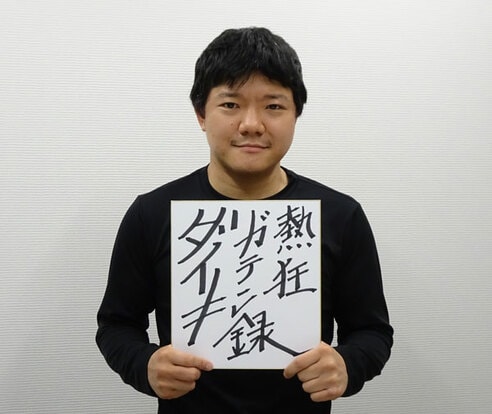 熱狂
リガテン録
ダイキ